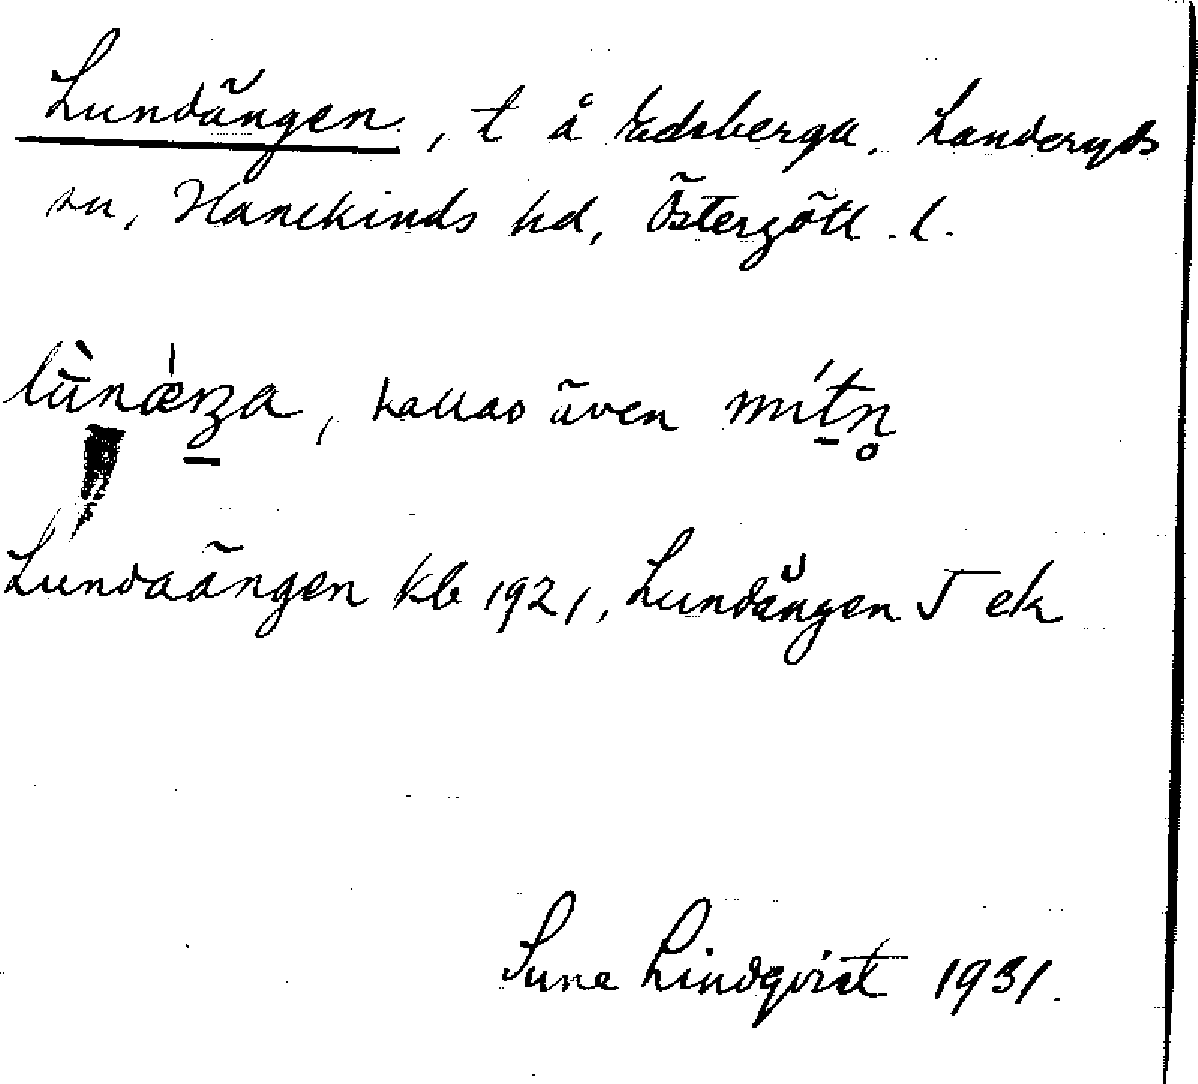 Lundängen, t å Edsberga, Landeryds
sn, Hanekinds hd, Östergötl. l.
kallas även
Lundaängen kb 1921, Lundängen J ek
Sune Lindqvist 1931.